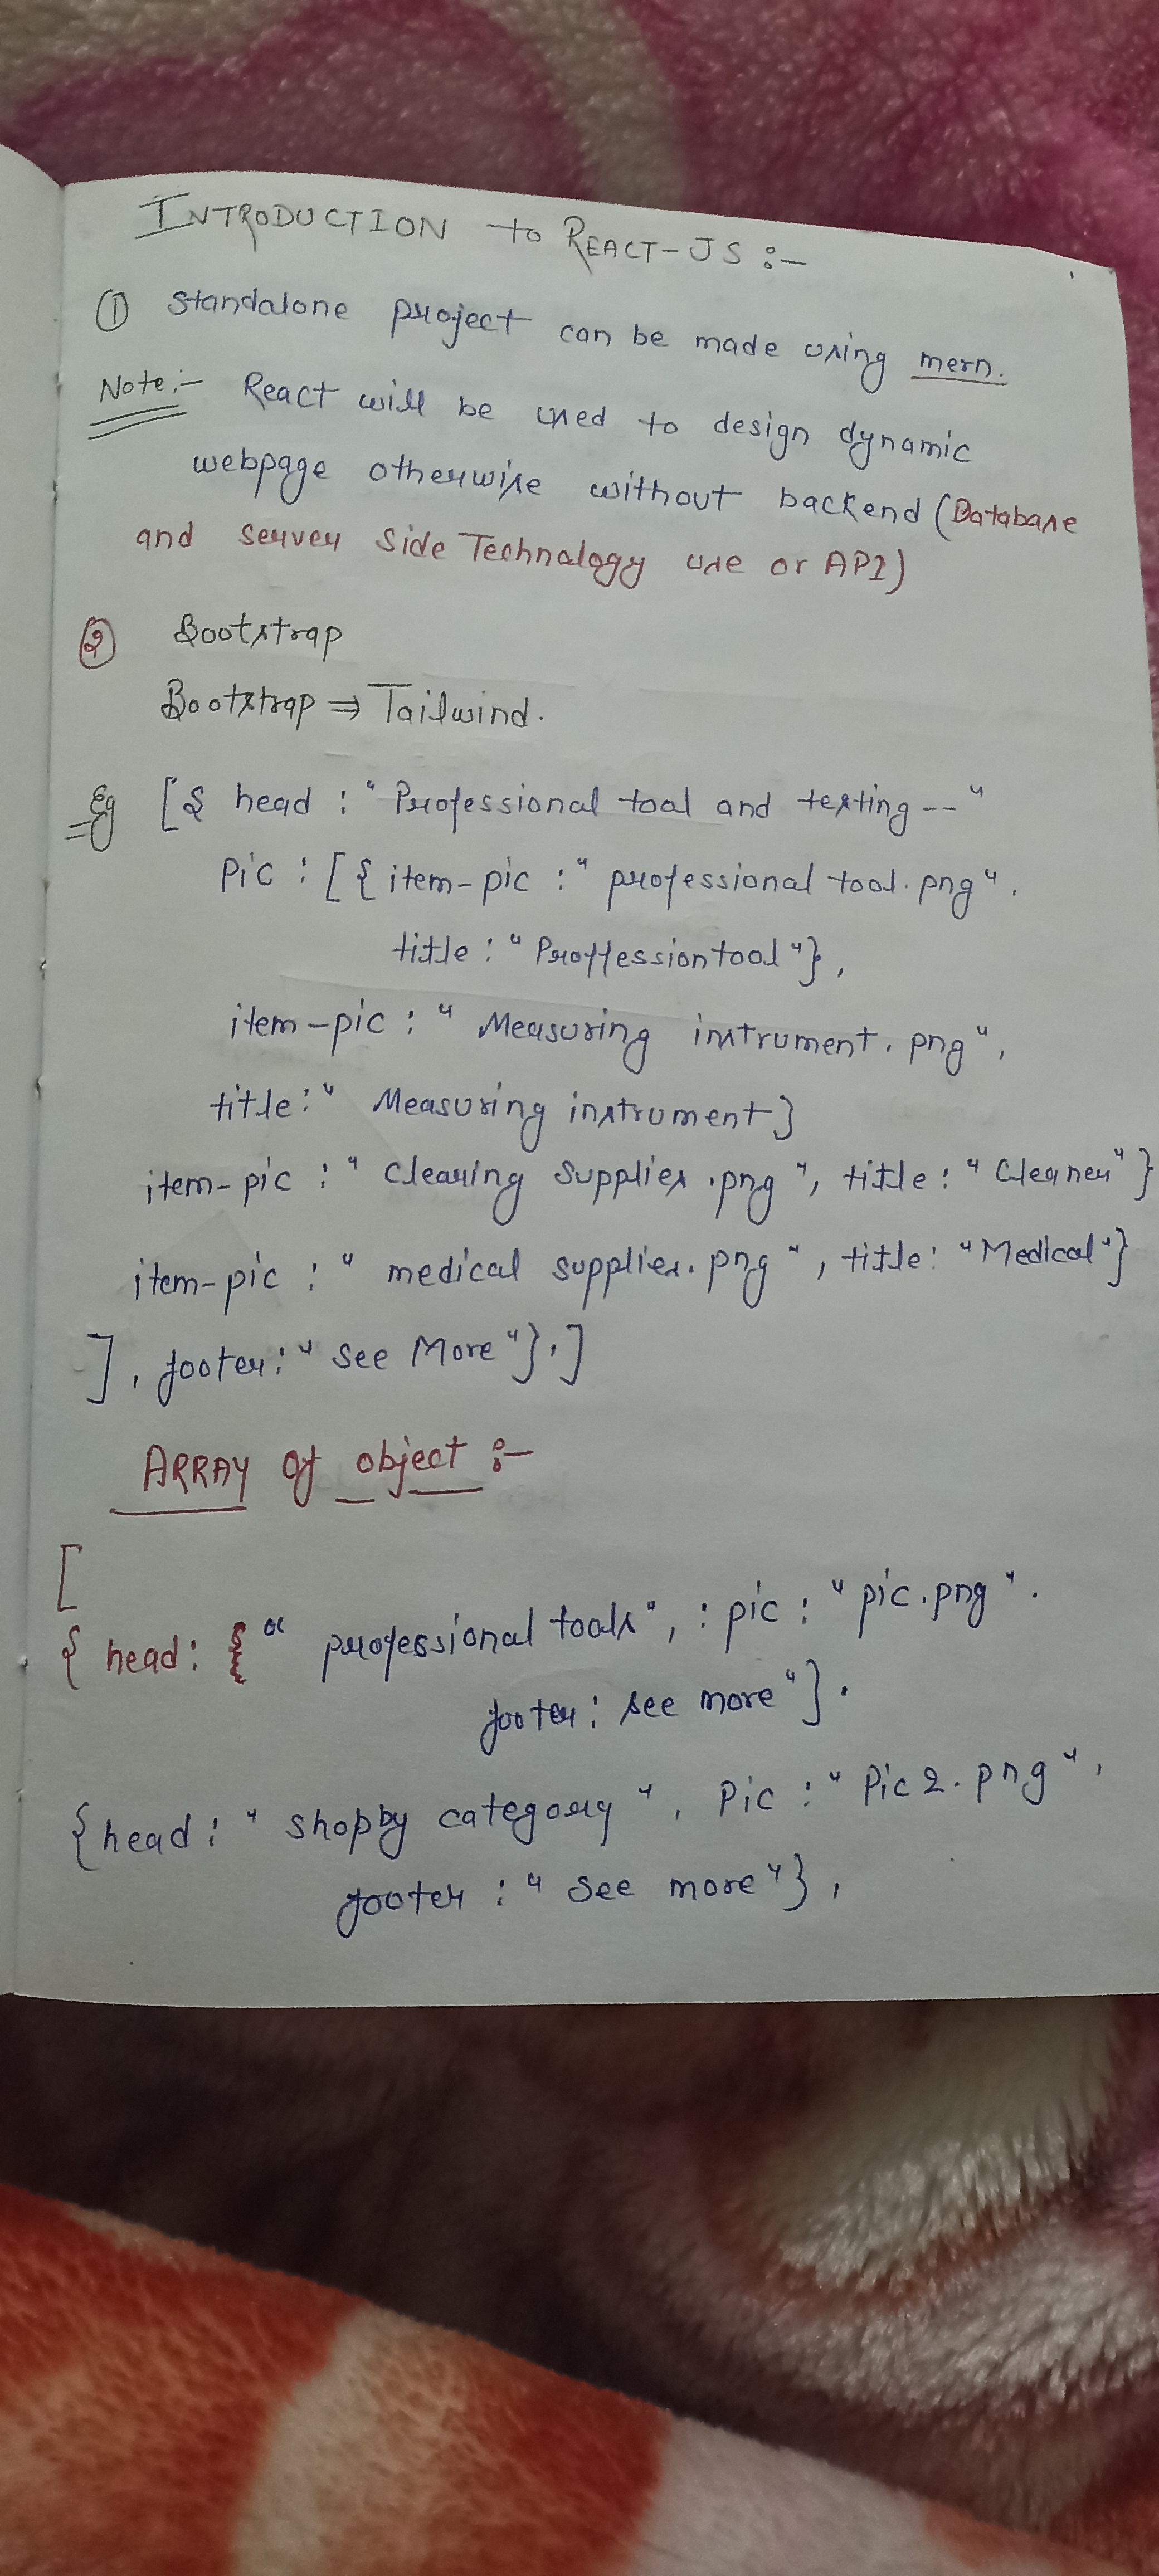 INTRODUCTION to REACT-JS :-
① standalone project can be made using mern.
Note:- React will be used to design dynamic
webpage otherwise without backend (Database
and server side Technalogy use or API)
② Bootstrap
Bootstrap ⇒ Tailwind.
Eg [{ head : "Professional tool and testing --"
Pic : [{ item-pic : "professional tool.png".
title : "Proffessiontool"},
item-pic : " Measuring instrument.png",
title:" Measuring instrument}
item-pic : " Clearing supplies.png", title : "Cleaner"}
item-pic : " medical supplies.png", title: "Medical"}
], footer: "See More"},]
ARRAY of object :-
[
{ head: { " professional tools", : pic : "pic.png".
footer : see more"}.
{head : " shopby category ", Pic : "Pic2.png",
footer : " see more"},